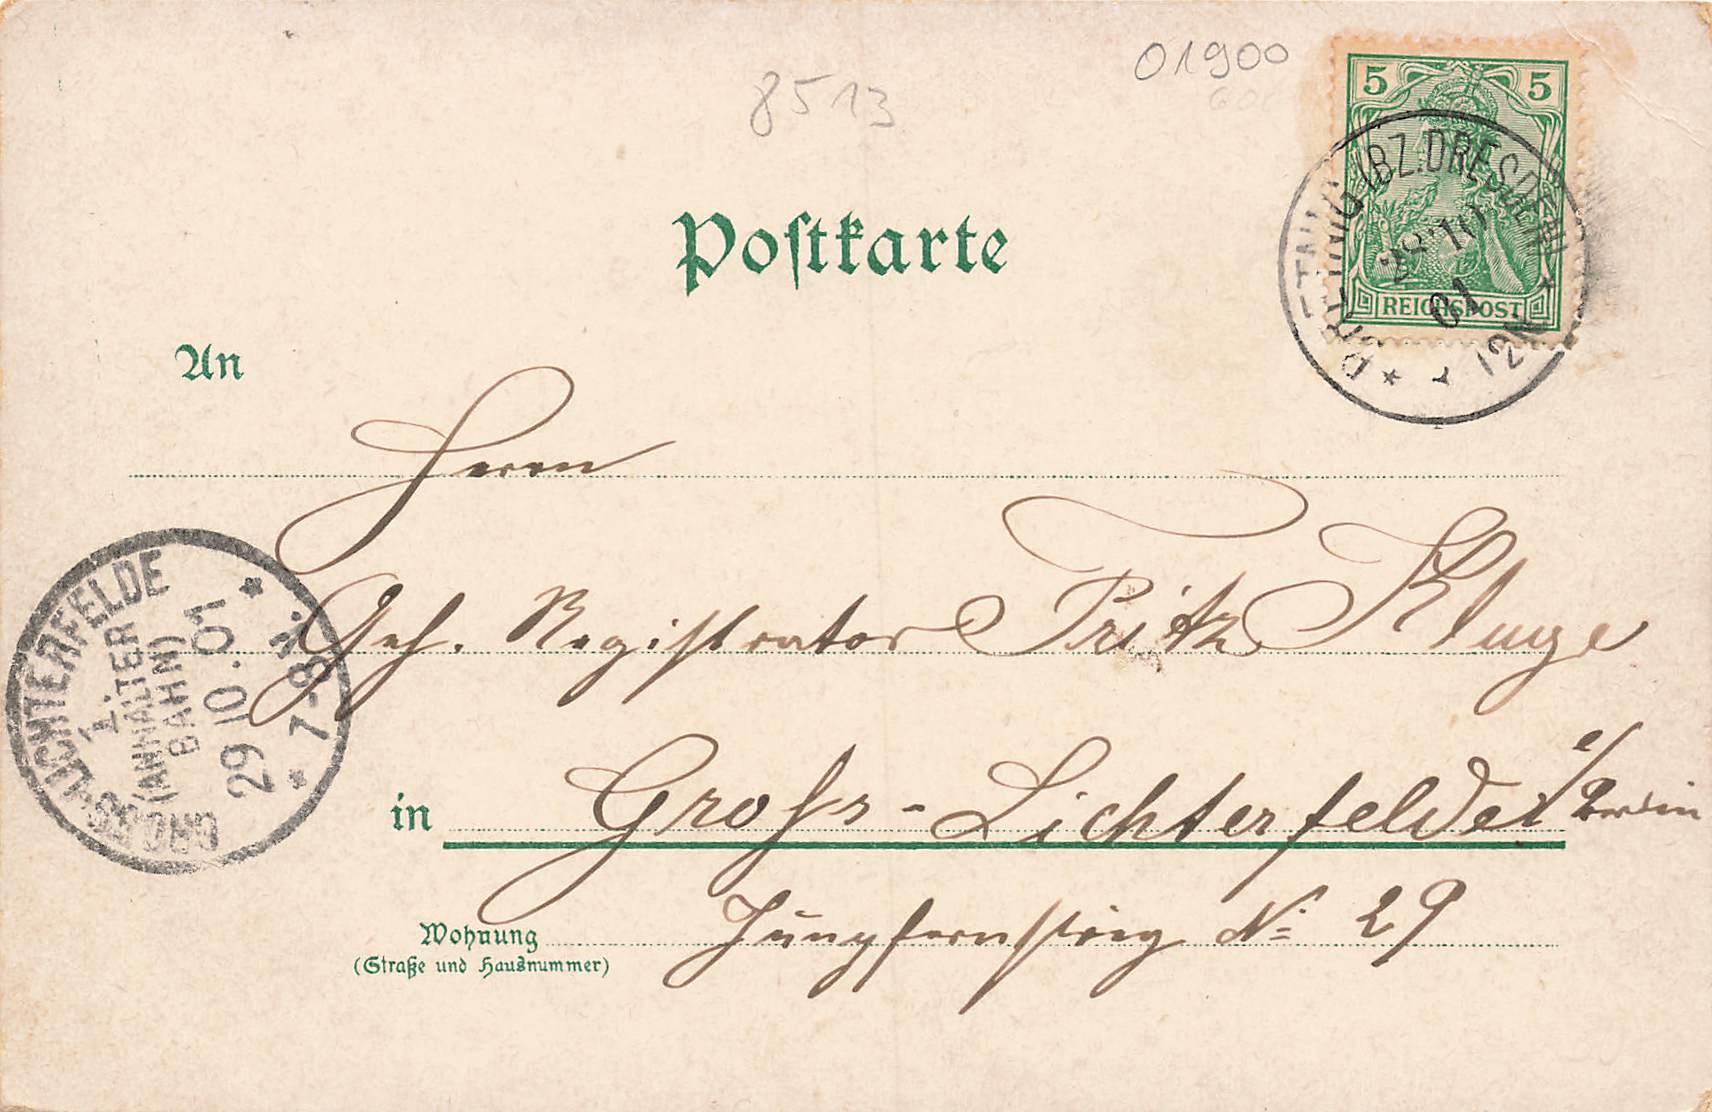 01900
8513
5 5
REICHSPOST
BRETNIG (BZ. DRESDEN)
28 10
01
12N
Postkarte
An
Herrn
Geh. Registrator Fritz Kluge
in Gross-Lichterfelde b/Berlin
Wohnung
(Straße und Hausnummer)
Jungfernstieg No 29
GROSS-LICHTERFELDE
1.
(ANHALTER
BAHN)
29.10.01
7-8 N.